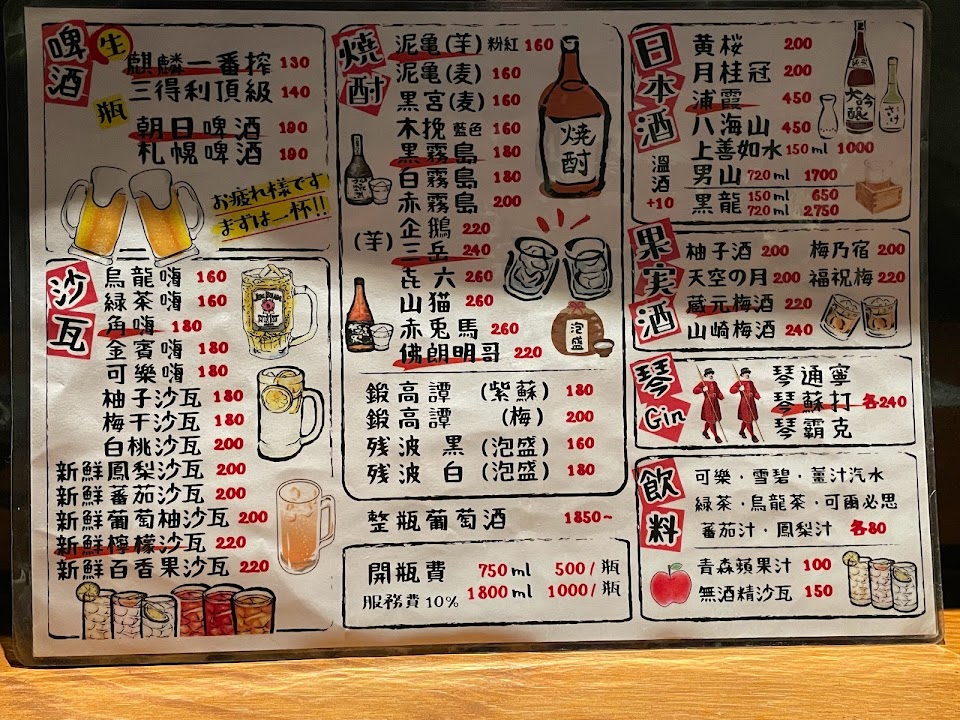 啤酒
生
麒麟一番搾 130
三得利頂級 140
瓶
朝日啤酒 190
札幌啤酒 190
お疲れ様です
まずは一杯!!
沙瓦
烏龍嗨 160
緑茶嗨 160
角嗨 180
金賓嗨 180
可樂嗨 180
柚子沙瓦 180
梅干沙瓦 180
白桃沙瓦 200
新鮮鳳梨沙瓦 200
新鮮蕃茄沙瓦 200
新鮮葡萄柚沙瓦 200
新鮮檸檬沙瓦 220
新鮮百香果沙瓦 220
焼酎
泥亀(芋) 粉紅 160
泥亀(麦) 160
黒宮(麦) 160
木挽 藍色 160
黒霧島 180
白霧島 180
赤霧島 200
(芋)
企鵝 220
三岳 240
㐂六 260
山猫 260
赤兎馬 260
佛朗明哥 220
焼酎
泡盛
鍛高譚 (紫蘇) 180
鍛高譚 (梅) 180
残波 黒 (泡盛) 160
残波 白 (泡盛) 180
整瓶葡萄酒 1850~
開瓶費 750ml 500/瓶
服務費10% 1800ml 1000/瓶
日本酒
黄桜 200
月桂冠 200
浦霞 450
八海山 450
上善如水 150ml 1000
男山 720ml 1700
黒龍 150ml 650
720ml 2750
溫酒
+10
大吟醸
果実酒
柚子酒 200 梅乃宿 200
天空の月 200 福祝梅 220
蔵元梅酒 220
山崎梅酒 240
琴
Gin
琴通寧
琴蘇打 各240
琴霸克
飲料
可樂・雪碧・薑汁汽水
緑茶・烏龍茶・可爾必思
蕃茄汁・鳳梨汁 各80
青森蘋果汁 100
無酒精沙瓦 150